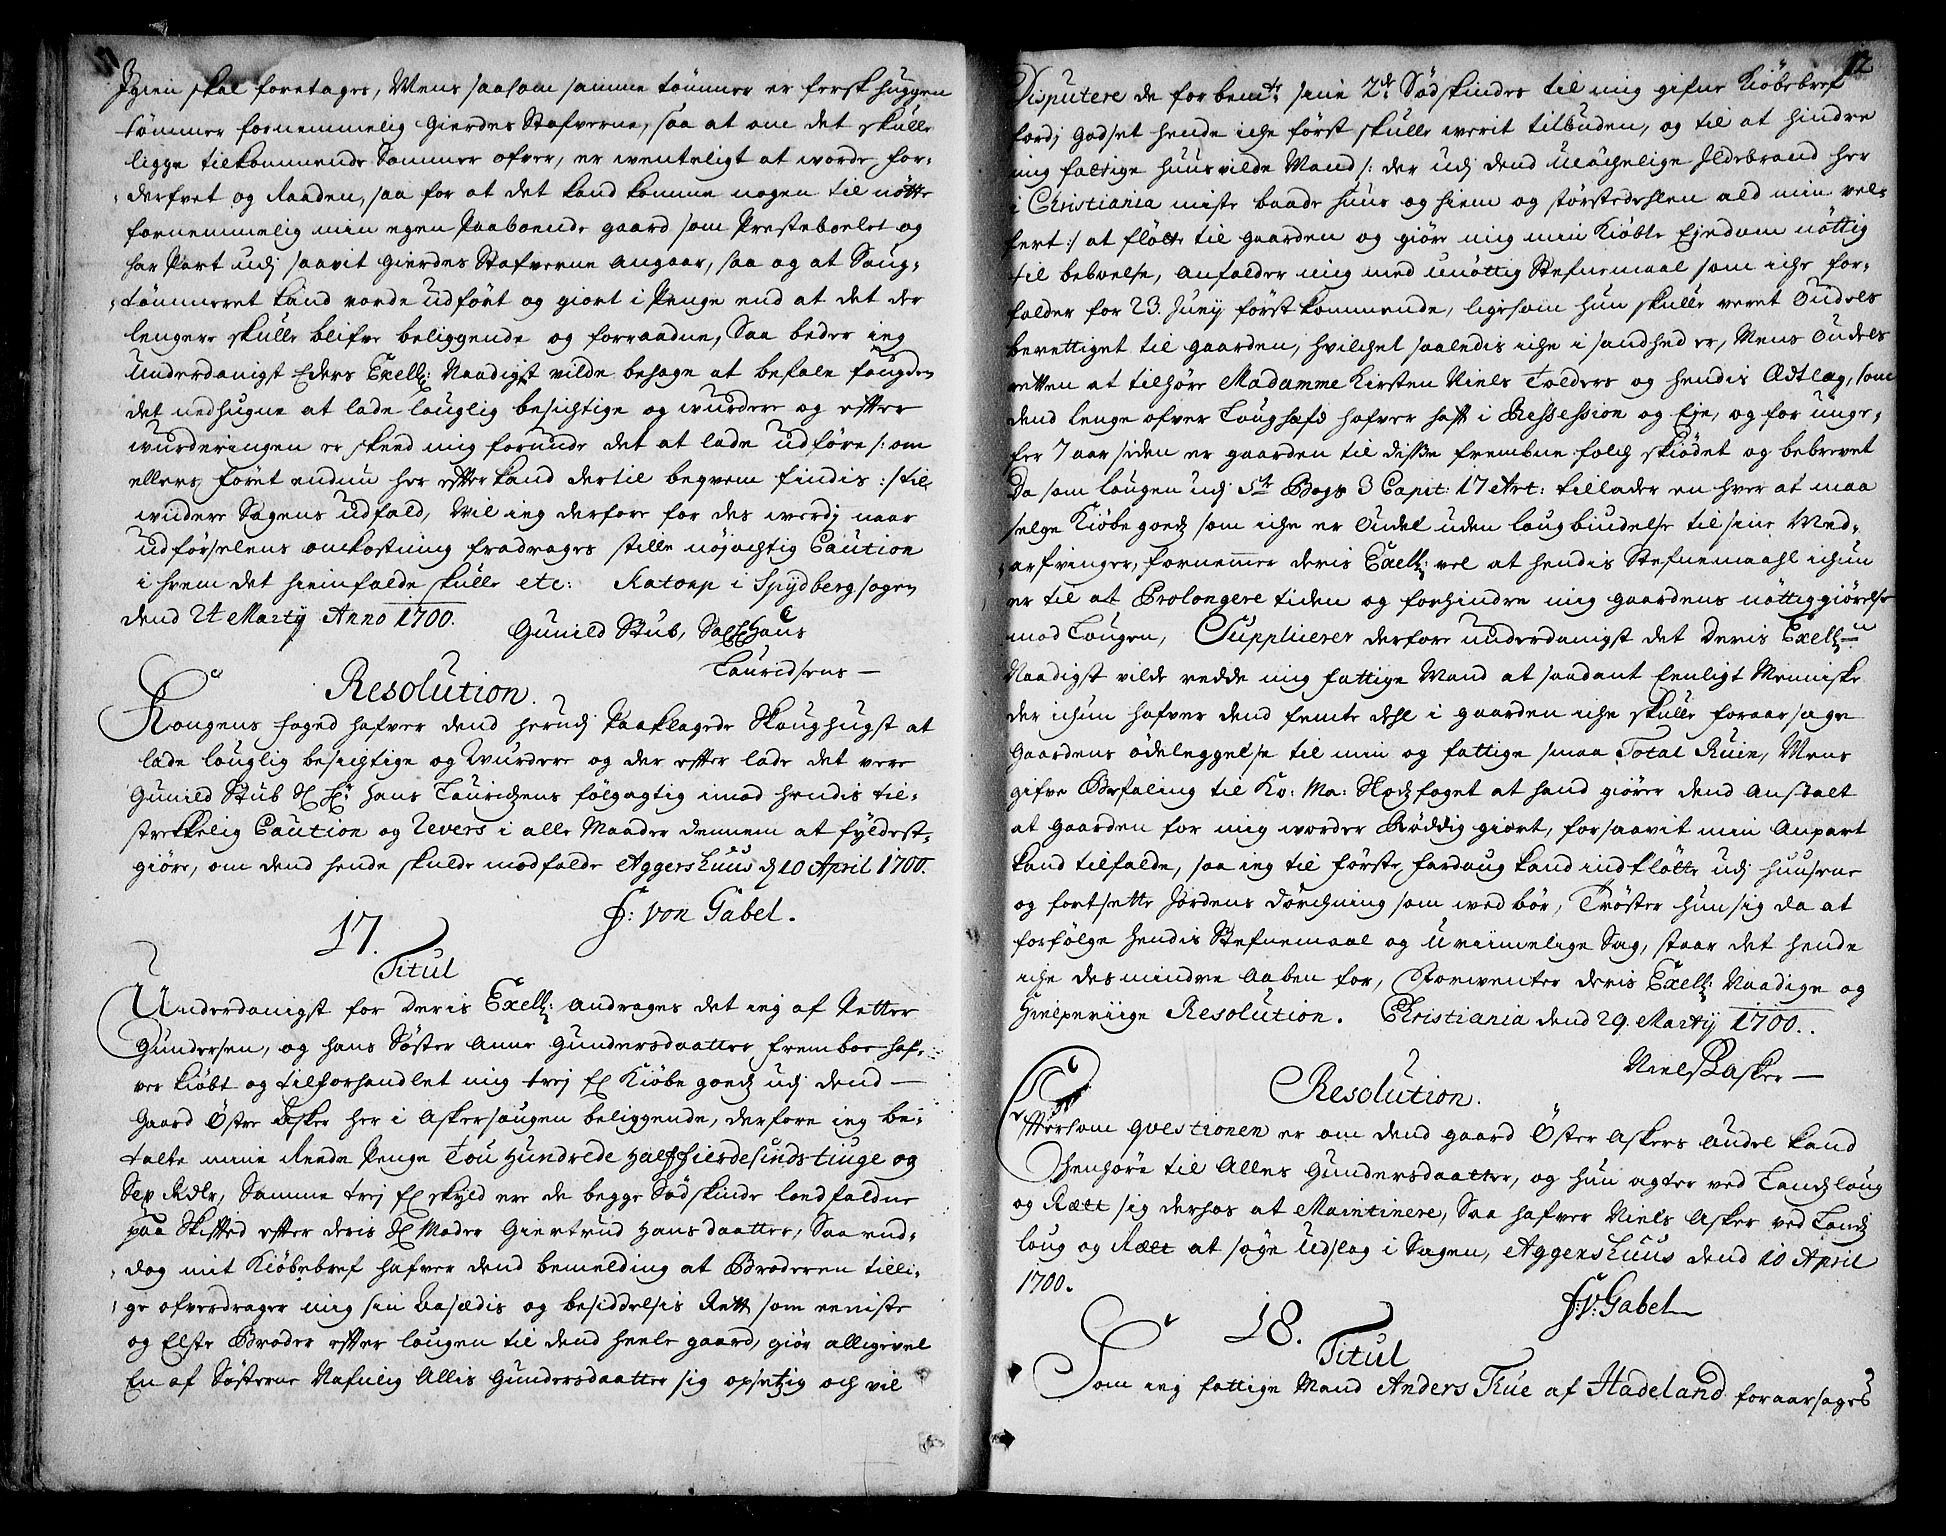 Igien skal foretages, Mens saasom samme tømmer er fersk huggen
tømmer fornemmelig gierdes Stafverne, saa at om det skulle
ligge tilkommende Sommer ofver, er wenteligt at worde for-
derfvet og Raaden, saa for at det kand komme nogen til nøtte
fornemmelig min egen Paaboende gaard som Presteboelet og
har Part udj saavit gierdes Stafverne angaar, saa og at Saug-
tømmeret kand vorde udført og giort i Penge end at det der
lengere skulle blifve beliggende og forraadne, Saa beder ieg
underdanigst Eders Excell: Naadigst vilde behage at befale fougden
det nedhugne at lade louglig besichtige og wurdere og efter
wurderingen er skeed mig forunde det at lade udføre /: om
ellers føret endnu her effter kand dertil beqvem findis :/ til
widere Sagens udfald, Vil ieg derfore for des werdj naar
udførselens omkostning fradrages stille nøjachtig Caution
i hvem det hiemfalde skulle etc: Katorp i Spydberg sogen
dend 24 Martij Anno 1700.
Gunild Stub, Sal Hans
Lauridsens
Resolution.
Kongens foged hafver dend herudj Paaklagede Skoughugst at
lade louglig besichtige og Wurdere og der effter lade det vere
Gunild Stub Sl Hr: Hans Lauridzens følgagtig imod hendis til-
strekkelig Caution og Revers i alle Maader dennem at fyldest-
giøre, om dend hende skulde modfalde Aggershuus d 10 April 1700.
F: von Gabel.
17.
Titul
Underdanigst for Deris Excell: andrages det ieg af Petter
Gundersen, og hans Søster Anne Gundersdaatter fremboe haf-
ver kiøbt og tilforhandlet mig trej Kiøbe goedz udj dend
Gaard Østre Asker her i Askersougen beliggende, derfore ieg be-
talte mine Reede Penge Tou Hundrede Half fierdesindstiuge og
Sex Rdlr, Samme trej skyld ere de begge Sødskinde lodfaldne
paa Skifted effter deris Sl Moder Giertrud Hansdaatter, Saa end-
dog mit Kiøbebref hafver dend bemelding at Broderen tilli-
ge ofverdrager mig sin Aasædis og besiddelsis Rett som eeniste
og Elste Broder effter lougen til dend heele gaard, giør alligevel
En af Søsterne Nafnlig Allis Gundersdaatter sig opsetzig och vil
12
Disputere de forbemte: sine 2de: Sødskindes til mig gifne Kiøbebref
fordj godset hende iche først skulle werit tilbuden, og til at hindre
mig fattige huusvilde Mand /: der udj dend ulöchelige Ildebrand her
i Christiania miste baade huus og hiem og størstedehlen ald min vel-
fert :/ at fløtte til gaarden og giøre mig min Kiøbte Ejendom nøttig
til beboelse, anfalder mig med unøttig Stefnemaal som iche for-
falder for 23. Junij først kommende, ligesom hun skulle veret Oudels
berettiget til gaarden, hvilchet saaledis iche i sandhed er, Mens Oudels
retten at tilhøre Madamme Kirsten Niels Tolders og hendis Aftlæg, som
dend lenge ofver Loughafd hafver hafft i Possession og Eje, og for unge-
fer 7 aar siden er gaarden til disse frembue folch skiødet og bebrevet
Da som lougen udj 5te Bogs 3 Capit: 17 Art: tillader en hver at maa
selge Kiøbe goedz som iche er Oudel uden lougbiudelse til sine Med-
arfvinger, fornemmer deris Excell: vel at hendis Stefnemaahl ichun
er til at Prolongere tiden og forhindre mig gaardens nøttiggiørelse
mod Lougen, Supplicerer derfore underdanigst det Deris Excell:
Naadigst vilde redde mig fattige Mand at saadant Eenligt Menniske
der ichun hafver dend femte dehl i gaarden iche skulle foraarsage
Gaardens ødeleggelse til min og fattige smaa Total Ruin, Mens
gifve Befaling til Ko: Ma: Slodz foget at hand giører dend Anstalt
at gaarden for mig worder Røddig giort, forsaavit min Anpart
kand tilfalde, saa ieg til første fardaug kand indfløtte udj huusene
og fortsette Jordens dørchning som wed bør, Trøster hun sig da at
forfølge hendis Stefnemaal og urimelige Sag, staar det hende
iche desmindre aaben for, Forventer deris Excell: Naadige og
Hielperiige Resolution. Christiania dend 29. Martij 1700.
Niels Asker
Resolution.
Efftersom qvestionen er om dend gaard Øster Askers audel kand
henhøre til Alles Gundersdaatter, og hun agter ved Landzloug
og Rætt sig derhos at Maintinere, Saa hafver Niels Asker ved Landz
loug og Rætt at søge Udslag i Sagen, Aggershuus dend 10 April
1700.
F: V: Gabel
18.
Titul
Som ieg fattige Mand Anders True af Hadeland foraarsages